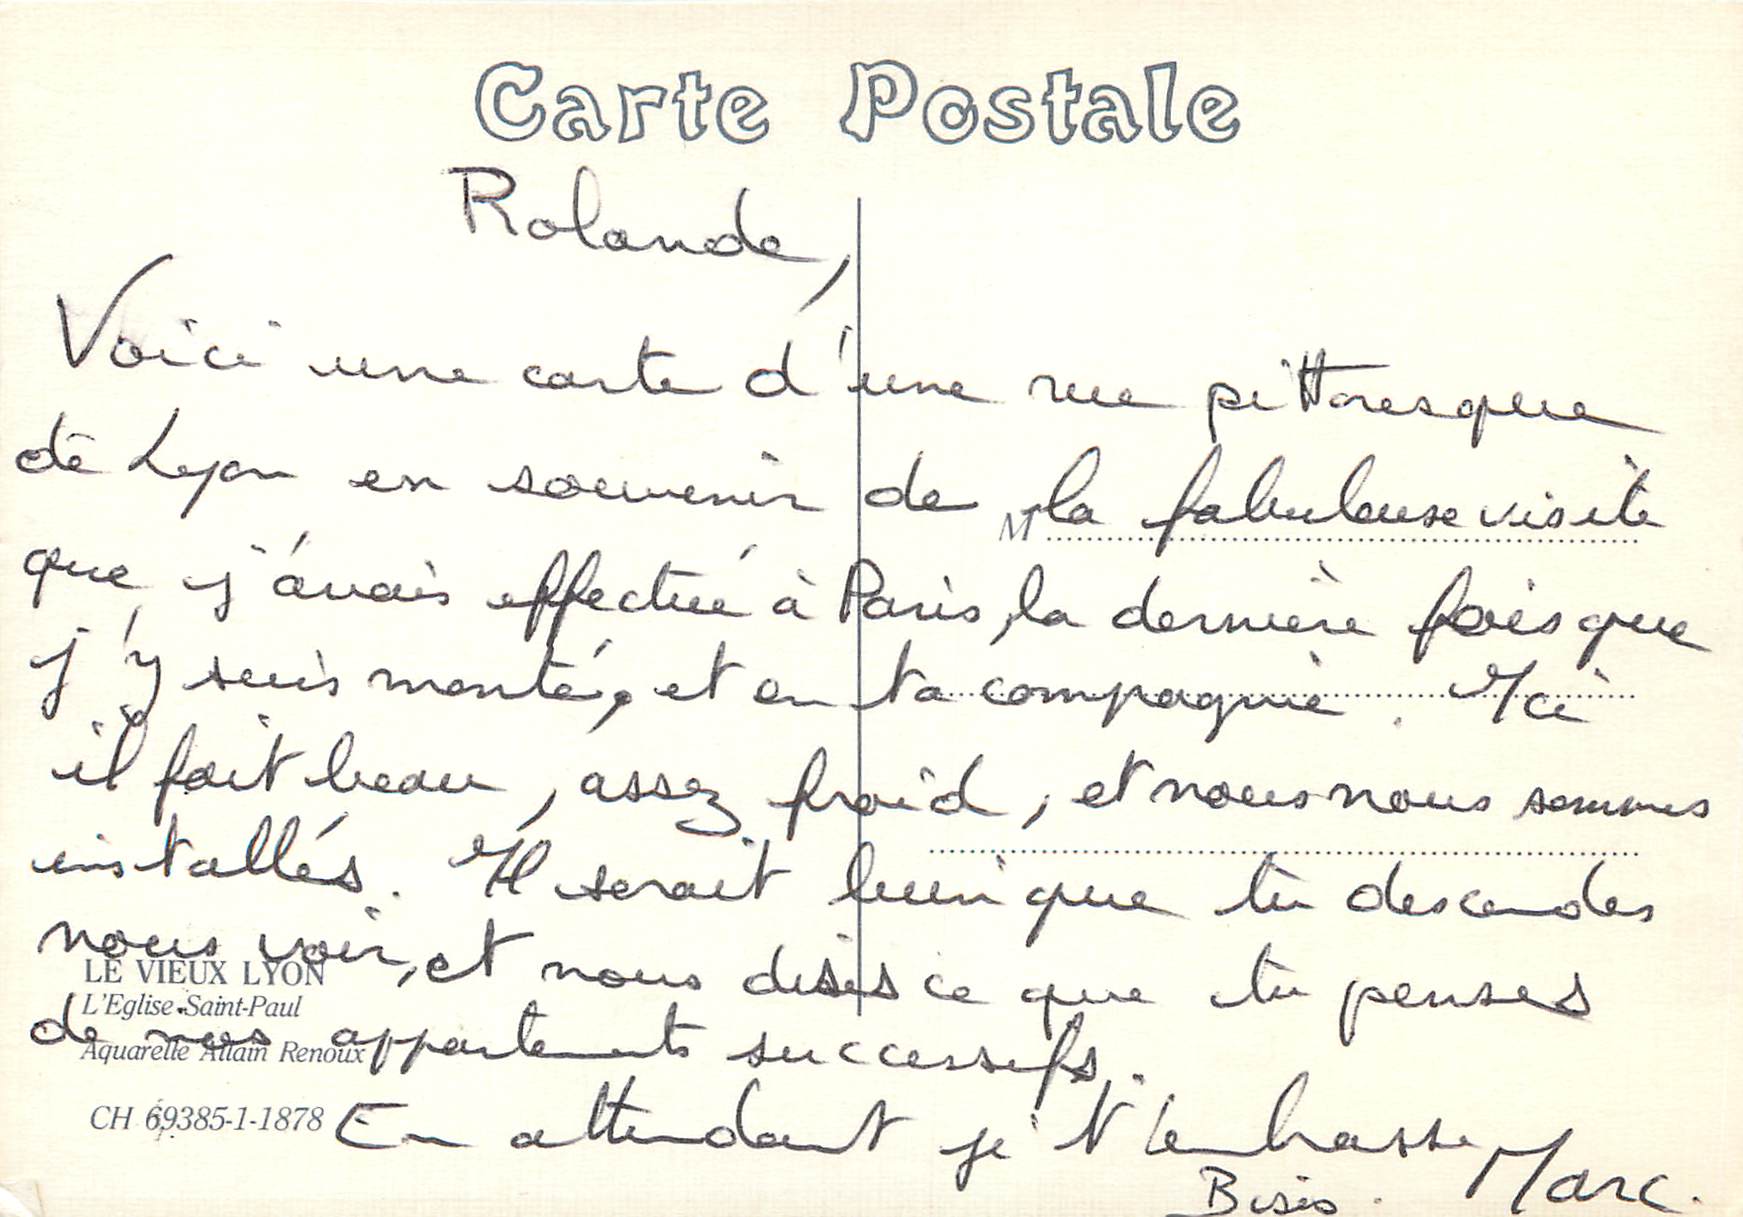 Carte Postale
Rolande,
Voici une carte d'une rue pittoresque
de Lyon en souvenir de la fabuleuse visite
M
que j'avais effectué à Paris, la dernière fois que
j'y suis monté, et en ta compagnie. Ici
il fait beau, assez froid, et nous nous sommes
installés. Il serait bien que tu descendes
nous voir, et nous dises ce que tu penses
LE VIEUX LYON
L'Eglise Saint-Paul
de nos appartements successifs.
Aquarelle Allain Renoux
CH 69385-1-1878
En attendant je t'embrasse
Bises. Marc.